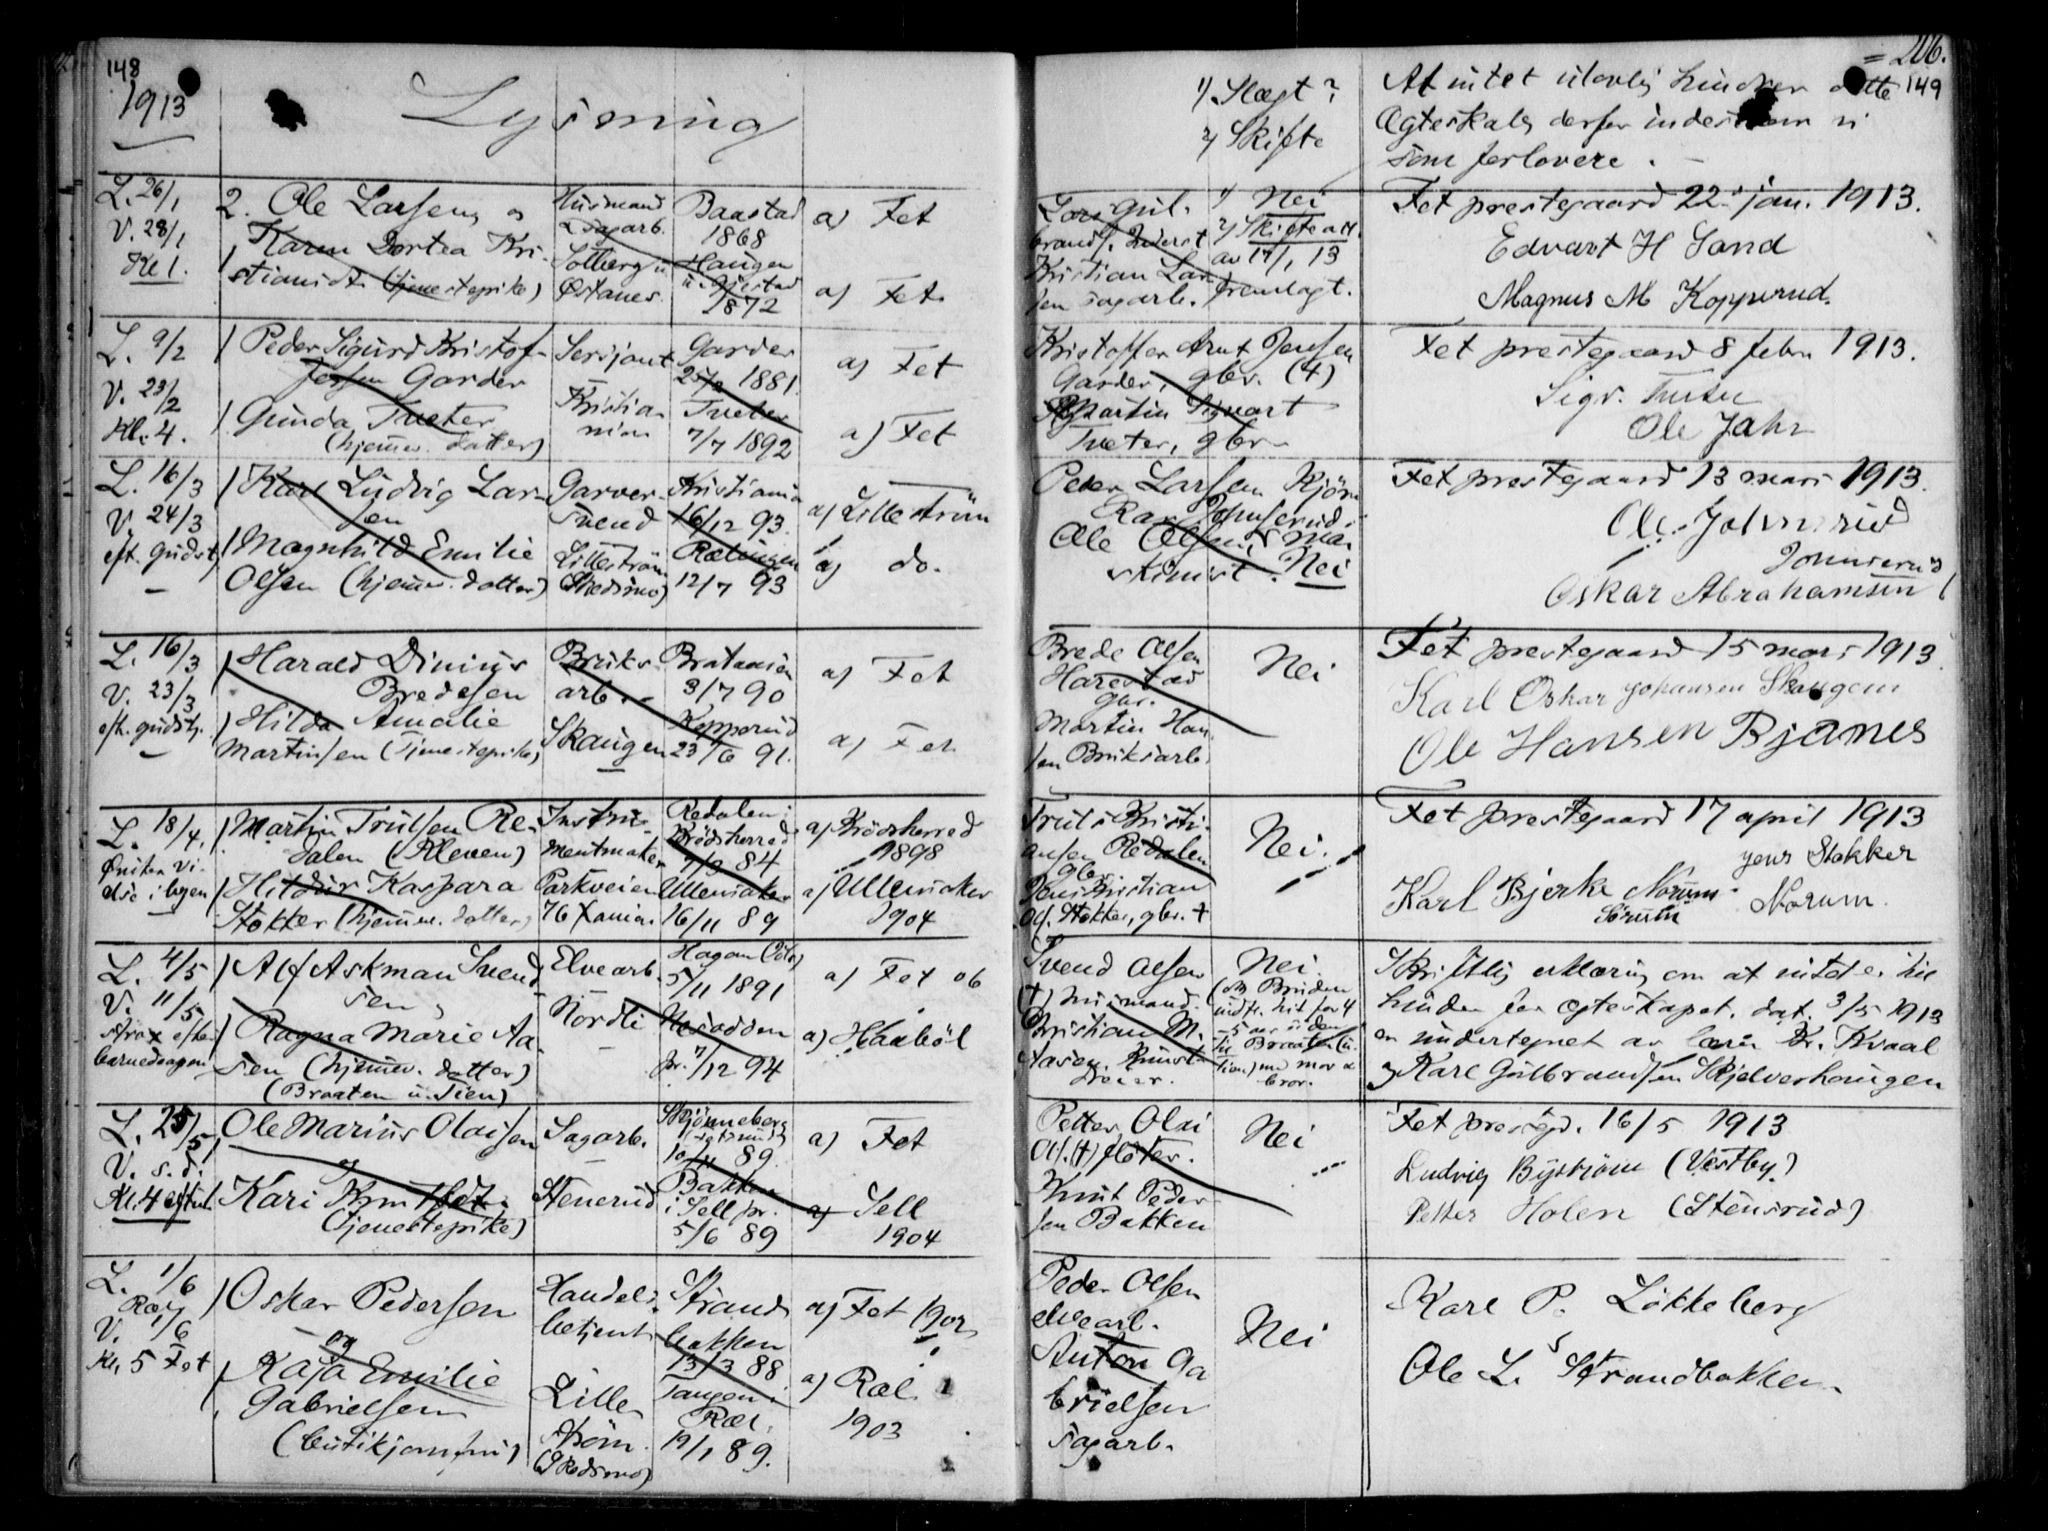 148
1913
Lysning
1) Slægt?
2) Skifte
At intet utovlig hindrer dette
Ægteskab, derfor indestaar vi
som forlovere.
= 206.
149
L. 26/1
V. 28/1
Kl 1.
2. Ole Larsen, og
Karen Dortea Kri-
stiansdtr. (tjenestepike)
Husmand
Sagarb.
Solberg u
Østanes.
Baastad
1868
Haugen
u. Gjestad
1872
a) Fet
a) Fet.
Lars Gul-
brands. Inderst
Kristian Lar-
sen sagarb.
1) Nei
2) Skifteatt.
av 17/1 13
fremlagt.
Fet prestegaard 22. jan. 1913.
Edvart H Sand
Magnus M Kopperud.
L. 9/2
V. 23/2
Kl. 4.
Peder Sigurd Kristof-
fersen Garder
Gunda Tveter
(hjemv. datter)
Sersjant
Kristia-
nia
Garder
1881.
Tveter
7/7 1892
a) Fet
a) Fet
Kristoffer Arnt Jensen
Garder, gbr. (4)
Martin Sigvart
Tveter, gbr.
Fet prestegaard 8 febr 1913.
Ole Jahr
L. 16/3
V. 24/3
eft. gudst.
Karl Ludvig Lar-
sen
Magnhild Emilie
Olsen (hjemv. datter)
Garver-
svend
Lillestrøm
(Skedsmo)
Kristiania
16/12 93.
Rælingen
12/7 93
a) Lillestrøm
a) do.
Peder Larsen
Ole Olsen, ma-
skinist. Nei
Fet prestegaard 13 mars 1913.
Ole Johnsrud
Johnserud
Oskar Abrahamsen
L. 16/3
V. 23/3
eft. gudstj.
Harald Dinius
Bredesen
Hilda Amalie
Martinsen (Tjenestepike)
Bruks-
arb.
Skaugen
Brataasen
3/7 90
Kopperud
23/6 91.
a) Fet
a) Fet.
Brede Olsen
Harestad
gbr.
Martin Han
sen Bruksarb.
Nei
Fet prestegaard 15 mars 1913.
Karl Oskar Johansen Skaugen
Ole Hansen Bjanes
L. 18/4.
Ønsker Vi-
else i byen
Martin Trulsen Re-
dalen (Kleven)
Hildur Kaspara
Stokker (hjemv. datter)
Instru-
mentmaker
Parkveien
76 Xania.
Redalen i
Krødsherred
7/9 84
Ullensaker
16/11 89
a) Krødsherred
1898
a) Ullensaker
1904
Truls Kristi-
ansen Redalen
gbr.
Jens Kristian
Ols. Stokker, gbr. +
Nei.
Fet prestegaard 17 april 1913
Jens Stokker
Norum.
Karl Bjerke Norum
Sørum
L. 4/5
V. 11/5
strax efter
barnedaapen
Alf Askman Svend-
sen,
Ragna Marie Aa-
sen (hjemv. datter)
(Braaten u. Tien)
Elvearb.
Nordli
5/11 1891
Nesodden
pr. 7/12 94
a) Fet 06
a) Haabøl
Svend Olsen
(+) husmand.
Kristian M.
Aasen.
Nei.
(NB Bruden
indfl. hit for 4
-5 aar siden
til Braaten (u.
Tien) med mor &
bror.
Skriftlig erklæring om at intet er til
hinder for ægteskapet, dat. 3/5 1913
er undertegnet av lærer Kr. Kvaal
og Karl Gulbrandsen Skjelverhaugen
L. 25/5
V. s. d.
Kl. 4 efterm.
Ole Marius Olaisen
og
Kari
(Tjenestepike)
Sagarb.
Stenerud
Skjønneberg
10/11 89.
Bakken
i Sell pr.
5/6 89
a) Fet
a) Sell
1904
Petter Olai
Ols. (+) fløter.
Knut Peder
sen Bakken
Nei
Fet prestegd. 16/5 1913
Ludvig Byström (Vestby)
Petter Holen (Stensrud)
L. 1/6
Ræl.
V. 1/6
Kl. 5 Fet
Oskar Pedersen
og
Kaja Emilie
Gabrielsen
(butikjomfru)
Handels-
betjent
Lille-
strøm.
(Skedsmo)
Strand-
bakken
13/3 88
Tangen i
Ræl.
19/1 89.
a) Fet 1902
a) Ræl.
1903
Peder Olsen
elvearb.
Anton Ga
brielsen
sagarb.
Nei
Karl P. Løkkeberg
Ole L. Strandbakken.